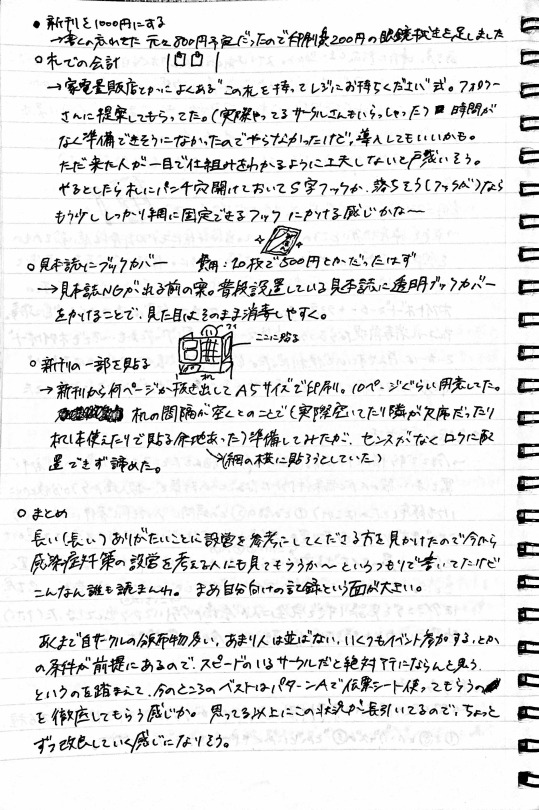 • 新刊を1000円にする
→書くの忘れてた 元々800円予定だったので印刷費200円の眼鏡拭きを足しました
○ 札での会計
→家電量販店とかによくある"この札を持ってレジにお持ちください"式。フォロワー
さんに提案してもらってた。(実際やってるサークルさんもいらっしゃった) 時間が
なく準備できそうになかったのでやらなかったけど、導入してもいいかも。
ただ来た人が一目で仕組みをわかるように工夫しないと戸惑いそう。
やるとしたら札にパンチ穴開けておいてS字フックか、落ちそう(フックが)なら
もう少ししっかり網に固定できるフックにかける感じかな〜
○ 見本誌にブックカバー 費用:20枚で500円とかだったはず
→見本誌NGが出る前の案。普段設置している見本誌に透明ブックカバー
をかけることで、見た目はそのまま消毒しやすく。
ここに貼る
机
○ 新刊の一部を貼る
→新刊から何ページか抜き出してA5サイズで印刷。10ページぐらい用意してた。
机の間隔が空くとのことで(実際空いてたり隣が欠席だったり
机1本使えたりで貼る余地あった)準備してみたが、センスがなくロクに配
置できず諦めた。 →(網の横に貼ろうとしていた)
○ まとめ
長い(長い) ありがたいことに設営を参考にしてくださる方を見かけたので今から
感染症対策の設営を考える人にも見てもらうか〜というつもりで書いてたけど
こんなん誰も読まんわ。 まあ自分向けの記録という面が大きい。
あくまで自サークルの頒布物多い、あまり人は並ばない、いくつもイベント参加する、とか
の条件が前提にあるので、スピードのいるサークルだと絶対アテにならんと思う。
というのを踏まえて、今のところのベストはパターンAで伝票シート使ってもらうの
を徹底してもらう感じか。 思ってる以上にこの状況が長引いてるので、ちょっと
ずつ改良していく感じになりそう。